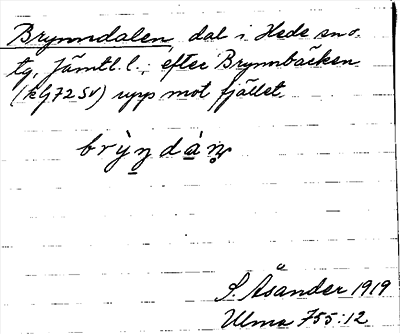 Brynndalen, dal i Hede sn o.
tg, Jämtl. l.; efter Brynnbäcken
(kbl 72 SV) upp mot fjället.
brỳn̲dà̲n̥
S. Åsander 1919
Ulma 755:12